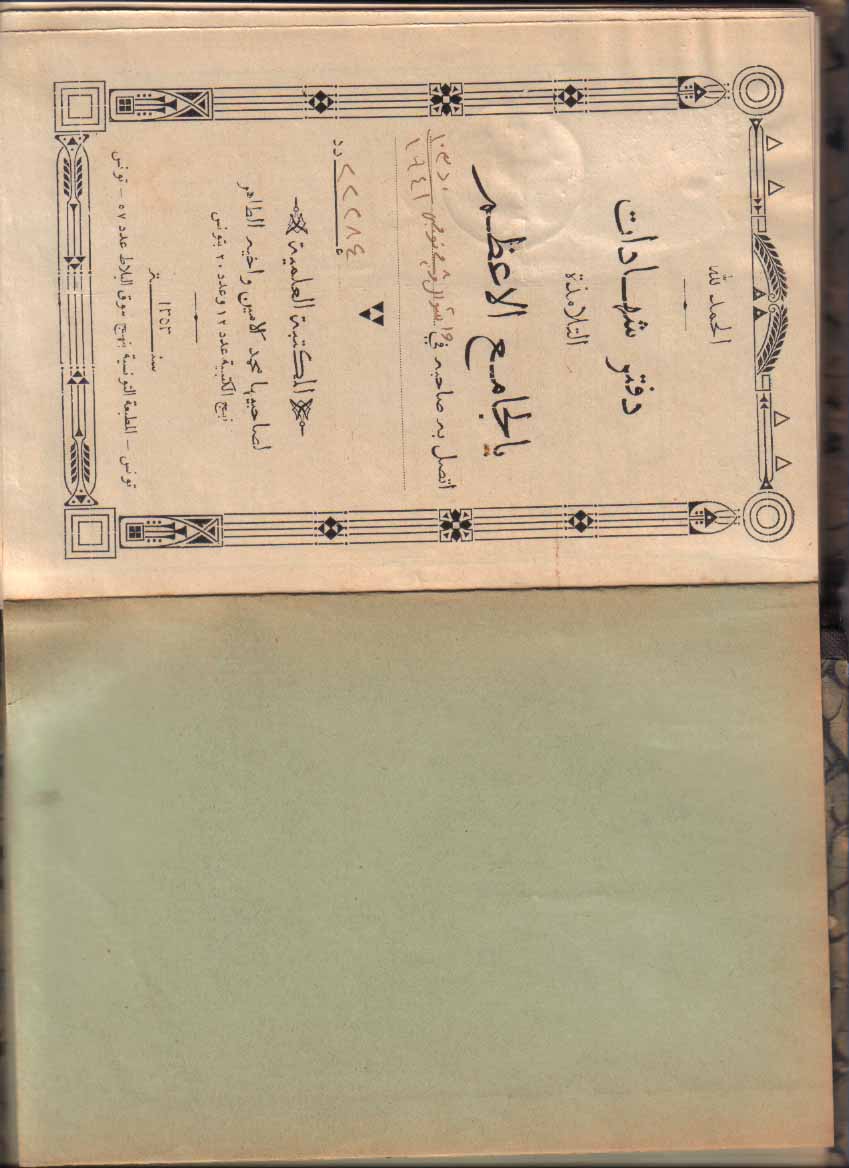 الحمد لله
دفتر شهادات
التلامذة
بالجامع الاعظم
اتصل به صاحبه في
١٩٤١
عدد
المكتبة العلمية
لصاحبيها محمد الامين واخيه الطاهر
نهج الكتبية عدد ١٢ وعدد ٢٠ بتونس
سنة ١٣٥٣
تونس - المطبعة التونسية نهج سوق البلاط عدد ٥٧ - تونس